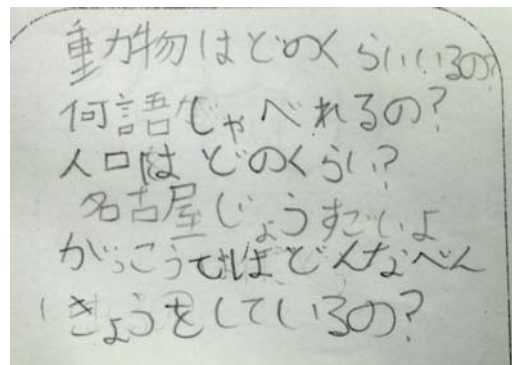 動物はどのくらいいるの?
何語じゃべれるの?
人口はどのくらい?
名古屋じょうすごいよ
がっこうではどんなべん
きょうをしているの?